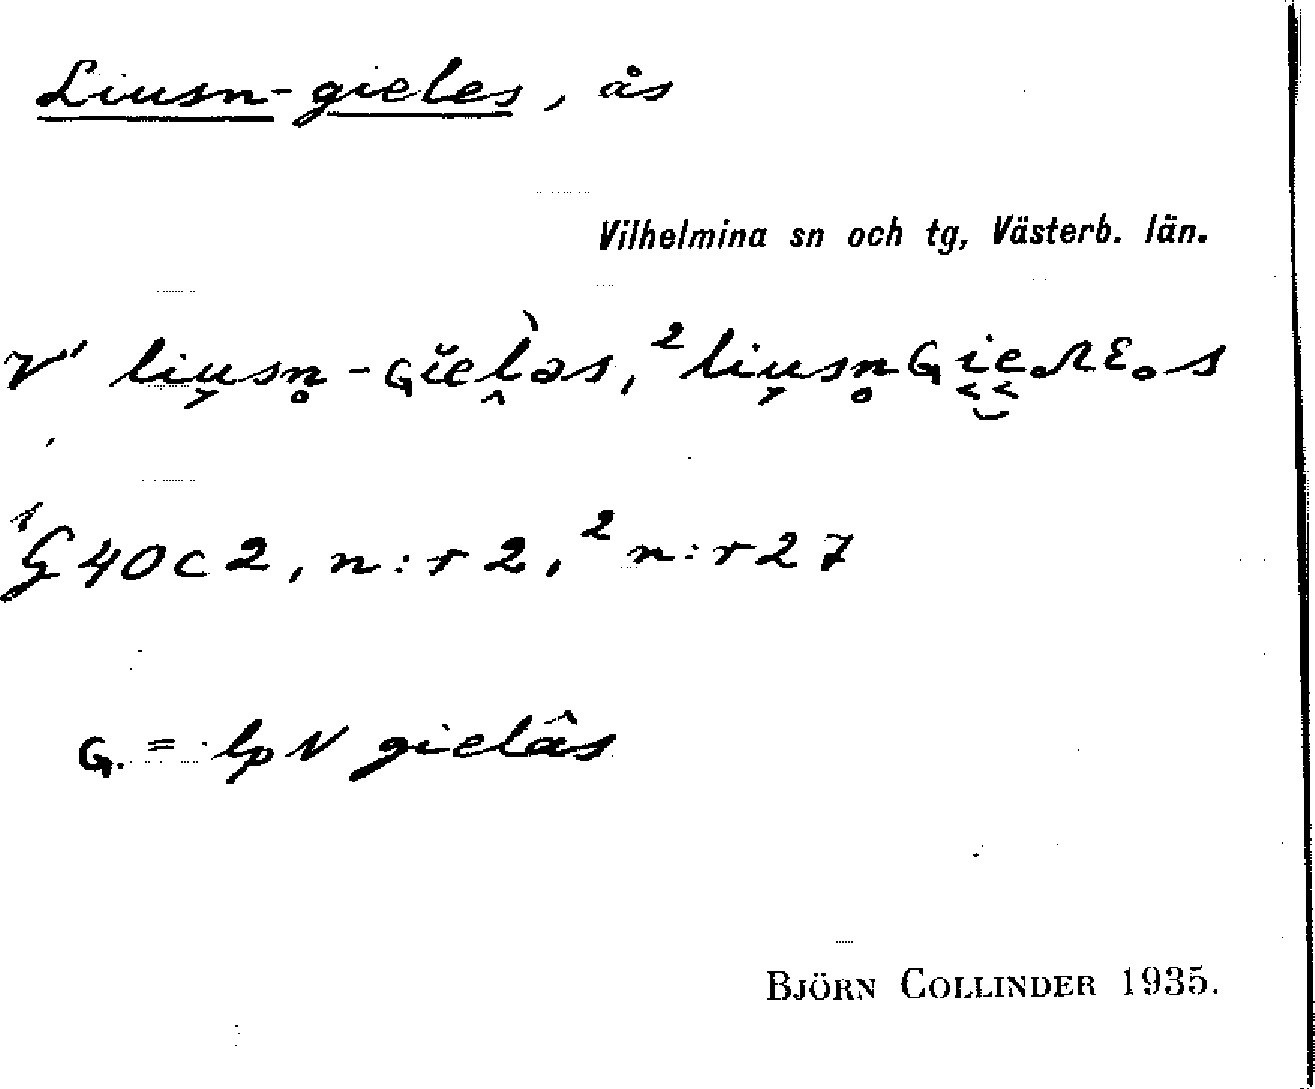 Liusn-gieles, ås
Vilhelmina sn och tg, Västerb. län.
V¹ liu̬sn̥-ɢĭeḽ̀əs, ²liu̬sn̥ɢi̬e̬ʌɛs
¹G40c2, n:r 2, ²n:r 27
ɢ. = lpN gielâs
BJÖRN COLLINDER 1935.